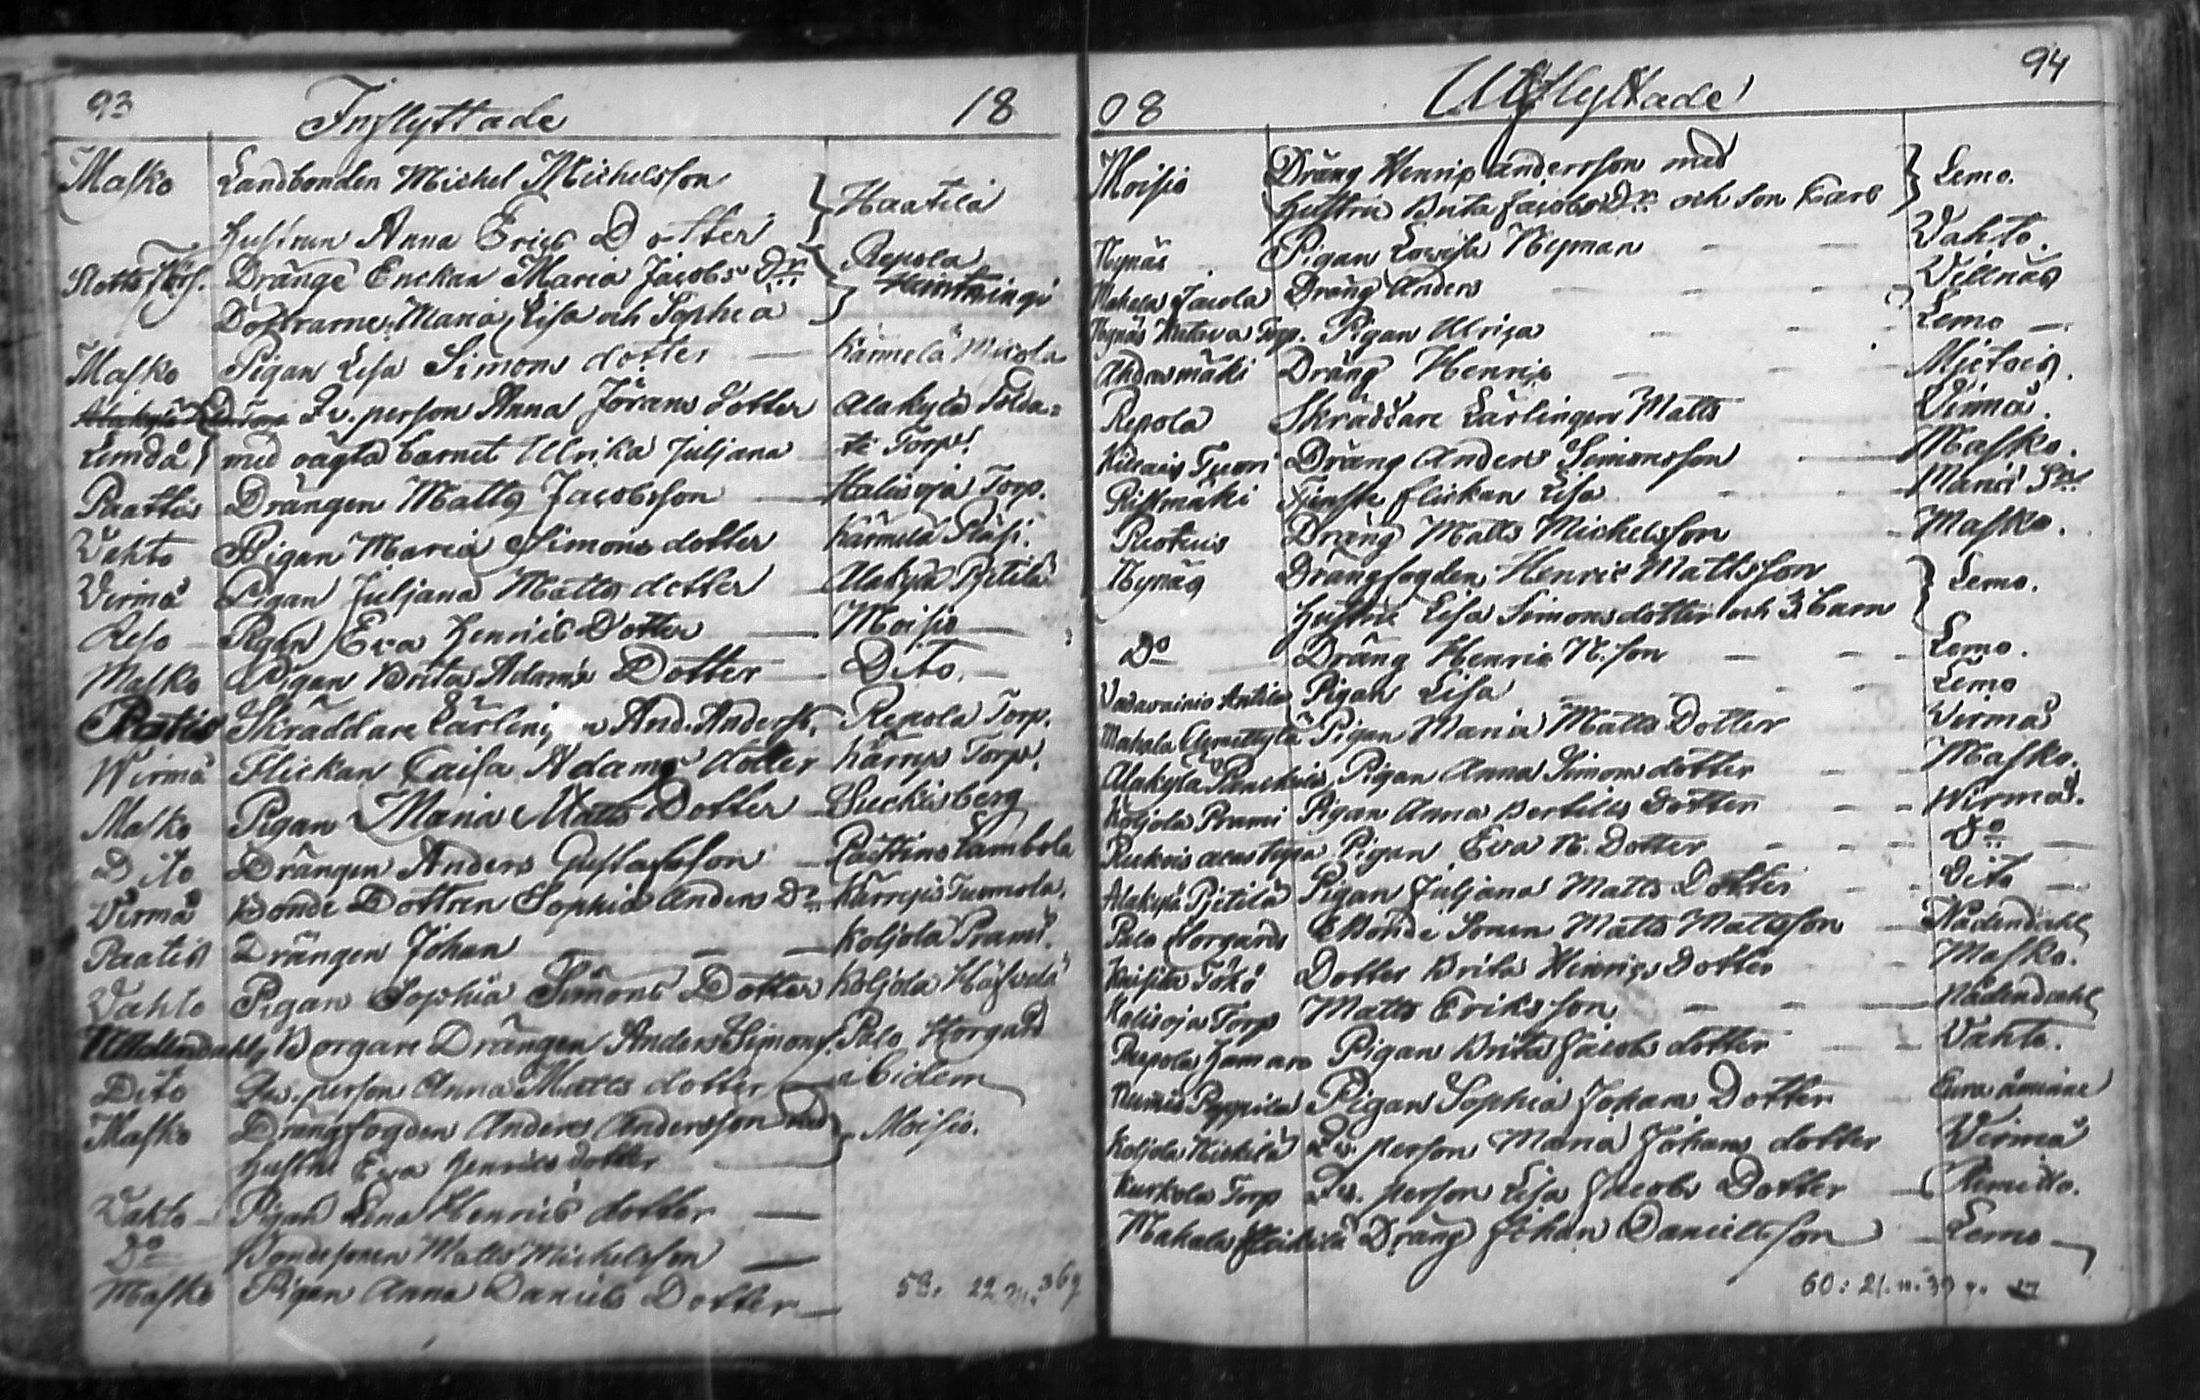 93 Inflyttade 18
Masko Landbonden Michel Michelsson } Haatila
Hustrun Anna Erics Dotter
Drängs Enckan Maria Jacobs Dr } Repola
Döttrarne Maria, Lisa och Sophia
Masko Pigan Lisa Simons dotter — Kärmelä Micola
Qv. person Anna Jörans dotter Alakylä Solda-
Lemdå med oägta barnet Ulrika Juljana te Torp.
Paattis Drängen Matts Jacobsson — Halisoja Torp.
Vahto Pigan Maria Simons dotter Kärmelä
Virmå Pigan Juljana Matts dotter — Alakylä Pjetilä
Reso — Pigan Eva Henrics Dotter — Moisio —
Masko Pigan Brita Adams Dotter — Dito. —
Paatis Skräddare And. Anderss. Repola Torp.
Wirmå Flickan Caisa Adams dotter Kärrys Torp.
Masko Pigan Maria Matts Dotter — Suckisberg
Dito Drängen Anders Gustafsson —
Virmå Bonde Dottren Sophia Anders Dr Tuomola.
Paatis Drängen Johan — — — Koljola Prami.
Vahto Pigan Sophia Simons Dotter Koljola
Borgare Drängen Anders Simonss. Palo Horgard
Dito Qv. person Anna Matts dotter — ibidem
Masko Drängfogden Anders Andersson med } Moisio.
Hustru Eva Henrics dotter —
Vahto — Pigan Lena Henrics dotter —
Do — Bondesonen Matts Michelsson —
Masko Pigan Anna Daniels Dotter —
58. 22 m. 36 q
08 Utflyttade 94
Moisio Dräng Henric Andersson med } Lemo.
Hustru Brita Jacobs Dr och son Carl
Nynäs Pigan Lovisa Nyman — — Vahto.
Mahala Jacola Dräng Anders — — Villnäs
Nynäs Torp. Pigan Ulrica — — Lemo —.
Ahdasmäki Dräng Henric — — Mietois.
Repola Skräddare Lärlingen Matts Virmå.
Tuori Dräng Anders Simonsson — Masko.
Ristmäki Tjenste flickan Lisa — —
Ruokuis Dräng Matts Michelsson — Masko.
Nynäs Drängfogden Henric Mattsson } Lemo.
Hustru Lisa Simonsdotter och 3 barn
Do Dräng Henric N. son — — — Lemo.
Antila Pigan Lisa — — — Lemo
Mahala Pigan Maria Matts Dotter Virmå
Alakylä Pigan Anna Simons dotter — — Masko.
Koljola Prami Pigan Anna Bertils Dotter — — Wirmå.
Pigan Eva N. Dotter — — — Do —
Alakylä Pjetilä Pigan Juljana Matts Dotter — — Dito —
Palo Horgard Bonde Sonen Matts Mattsson — Nådendahl
Dotter Brita Henrics Dotter — — Masko.
Halisoja Torp Matts Eriksson — — — Nådendahl
Repola Pigan Brita Jacobs dotter — — Vahto.
Pigan Sophia Johans Dotter —
Koljola Qv. person Maria Johans dotter Virmå
Kurkola Torp Qv. person Lisa Jacobs Dotter — Nimitto.
Mahala Heikilä Dräng Johan Danielsson — Lemo —
60: 21. m. 39 q.